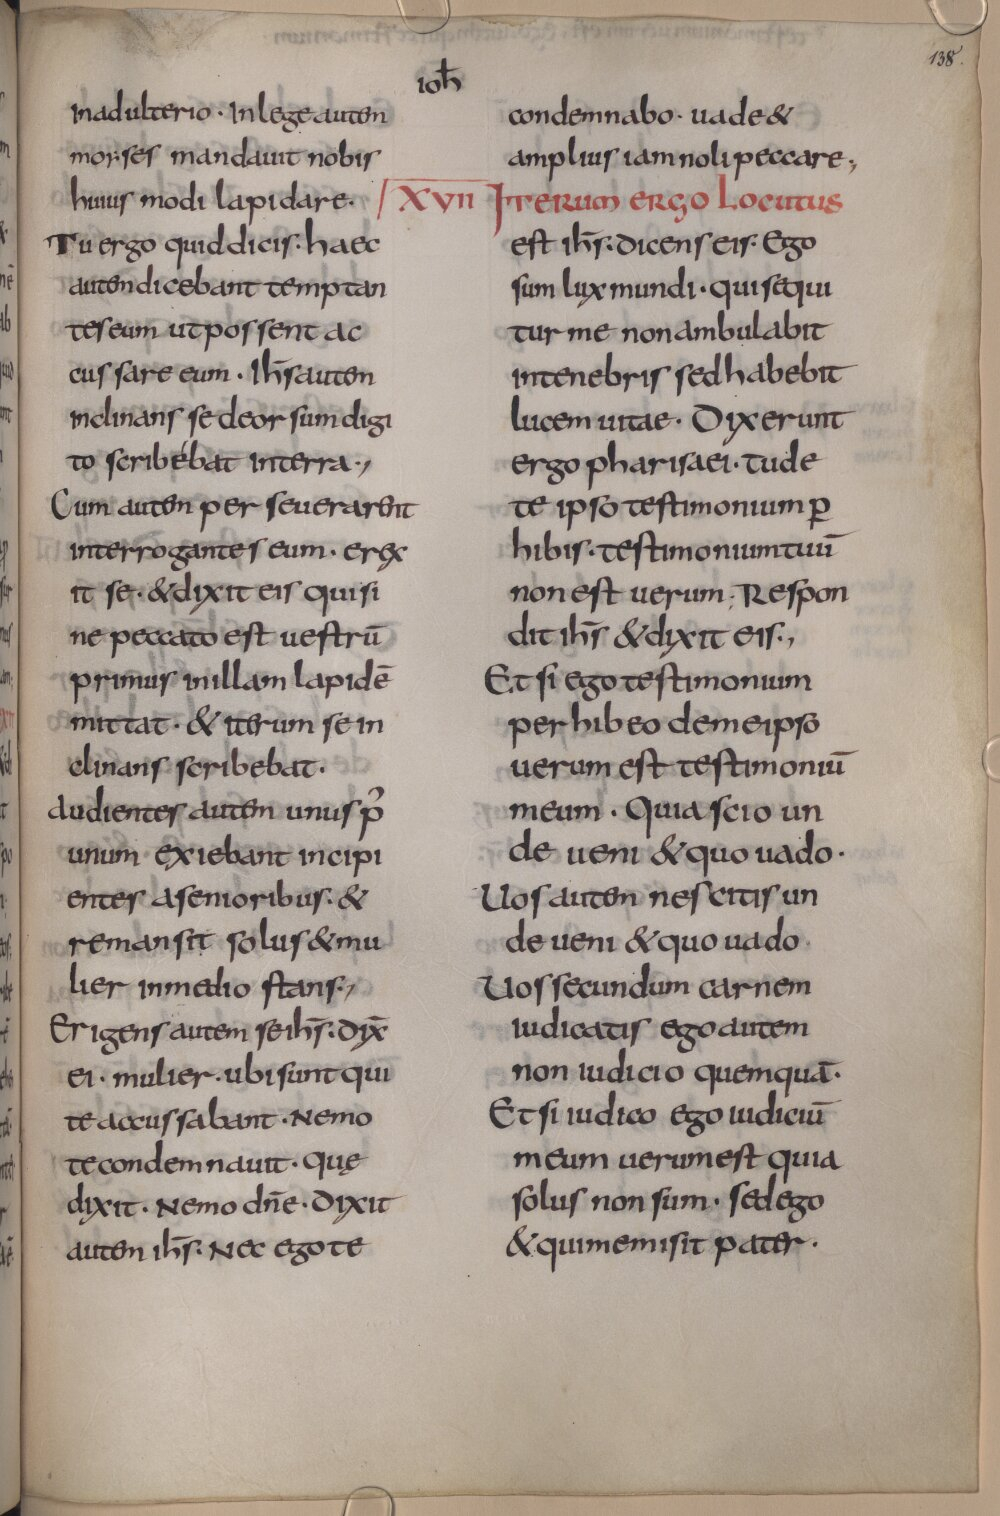 138.
ioħ
inadulterio · Inlege autem
morses mandauit nobis
huius modi lapidare ·
Tu ergo quid dicis · haec
autem dicebant temptan
tes eum ut possent ac
cussare eum · Ihs̄ autem
inclinans se deorsum digi
to scribebat interra ·,
Cum autem per seuerarent
interrogantes eum · erex
it se · & dixit eis qui si
ne peccato est uestrū
primus inillam lapidē
mittat · & iterum se in
clinans scribebat ·
Audientes autem unus p̄
unum exiebant incipi
entes asenioribus · &
remansit solus & mu
lier inmedio stans ·,
Erigens autem se ihs̄ · dix̄
ei · mulier · ubi sunt qui
te accussabant · Nemo
te condemnauit · Quę
dixit · Nemo dn̄e · Dixit
autem ihs̄ · Nec ego te
condemnabo · uade &
amplius iam noli peccare ;
XVII Iterum ergo Locutus
est ihs̄ · dicens eis · Ego
sum lux mundi · qui sequi
tur me non ambulabit
intenebris sed habebit
lucem uitae · Dixerunt
ergo pharisaei · tu de
te ipso testimonium ꝑ
hibis · testimonium tuū
non est uerum · Respon
dit ihs̄ & dixit eis ·,
Et si ego testimonium
per hibeo de meipso
uerum est testimoniū
meum · Quia scio un
de ueni & quo uado ·
Uos autem nescitis un
de ueni & quo uado ·
Uos secundum carnem
iudicatis ego autem
non iudicio quemquā ·
Et si iudico ego iudiciū
meum uerum est quia
solus non sum · sed ego
& qui me misit pater ·